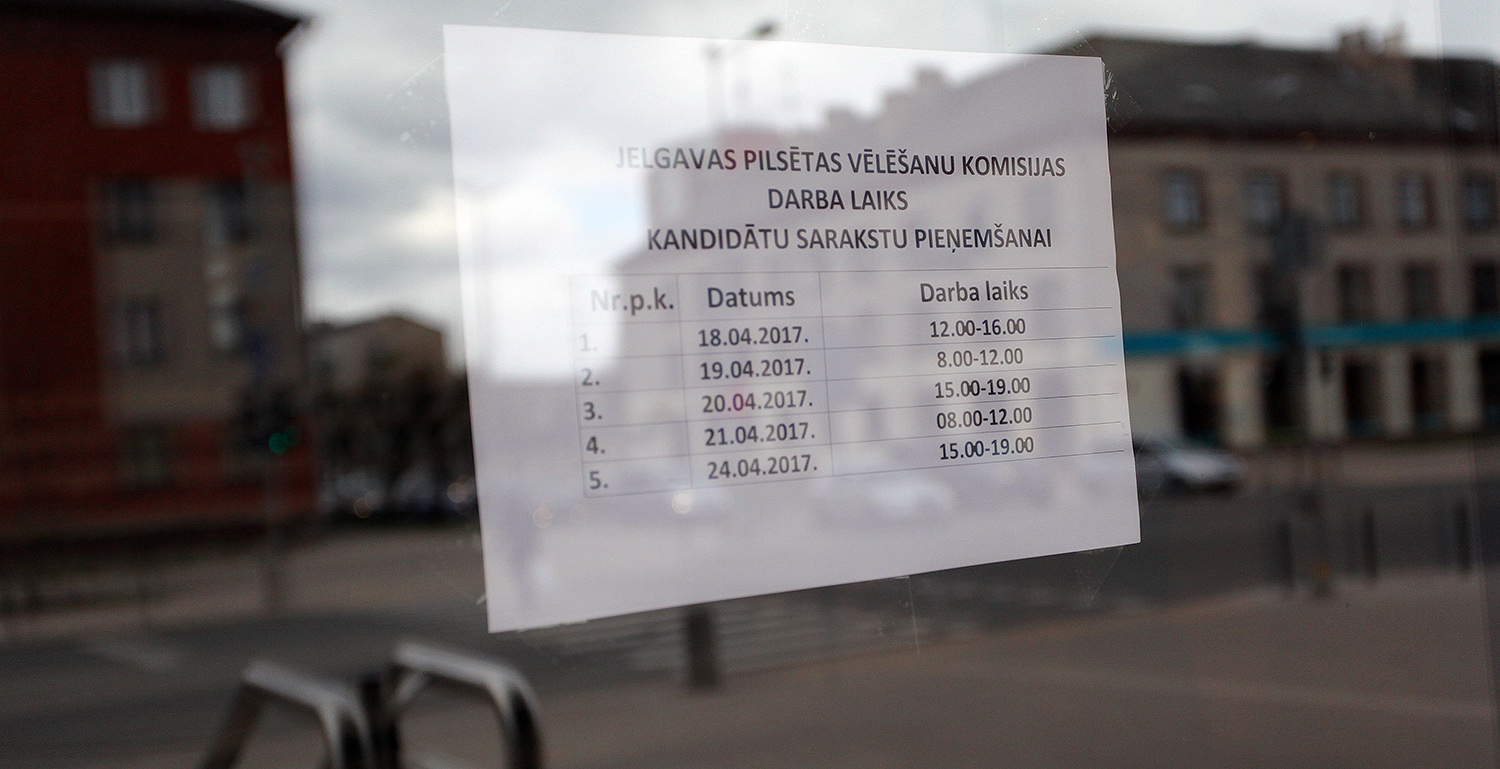 JELGAVAS PILSĒTAS VĒLĒŠANU KOMISIJAS
DARBA LAIKS
KANDIDĀTU SARAKSTU PIEŅEMŠANAI
Nr.p.k. Datums Darba laiks
1. 18.04.2017. 12.00-16.00
2. 19.04.2017. 8.00-12.00
3. 20.04.2017. 15.00-19.00
4. 21.04.2017. 08.00-12.00
5. 24.04.2017. 15.00-19.00